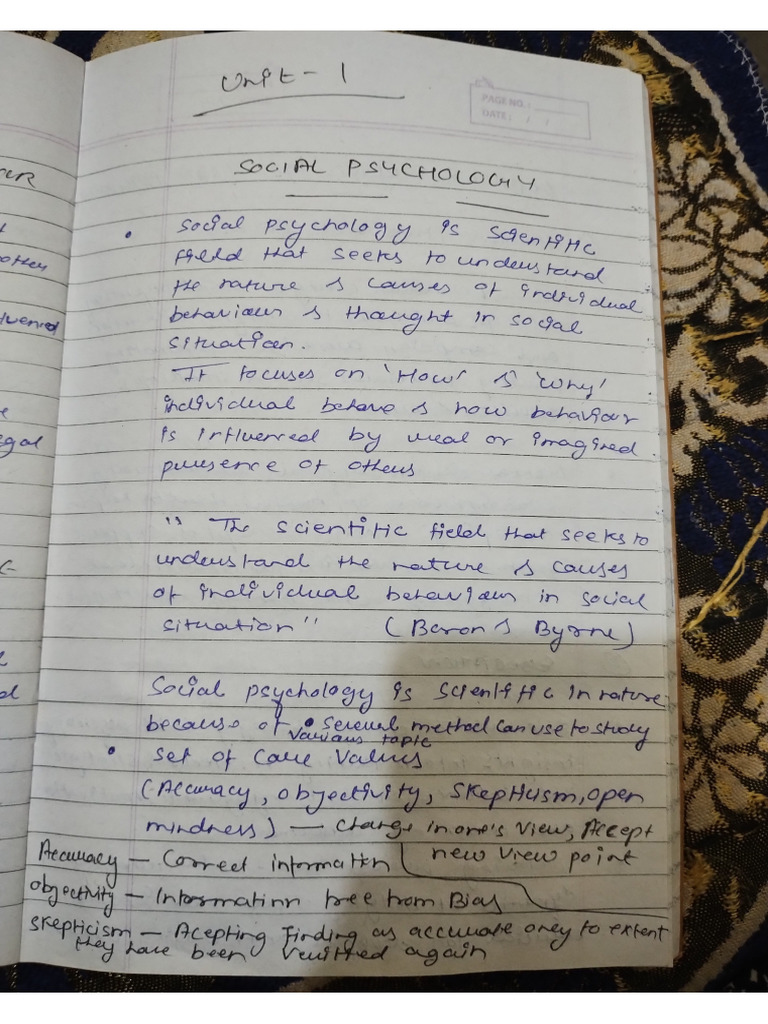 Unit - 1
PAGE NO. :
DATE : / /
SOCIAL PSYCHOLOGY
• Social psychology is scientific
field that seeks to understand
the nature & causes of individual
behaviour & thought in social
situation.
It focuses on 'How' & 'Why'
individual behave & how behaviour
is influenced by real or imagined
presence of others
" The scientific field that seeks to
understand the nature & causes
of individual behaviour in social
situation" (Baron & Byrne)
Social psychology is scientific in nature
because of • Several method can use to study
various topic
• Set of core values
(Accuracy, objectivity, skepticism, open
mindness) — change in one's view, Accept
new view point
Accuracy — Correct information
objectivity — Information free from Bias
Skepticism — Acepting finding as accurate only to extent
they have been verified again